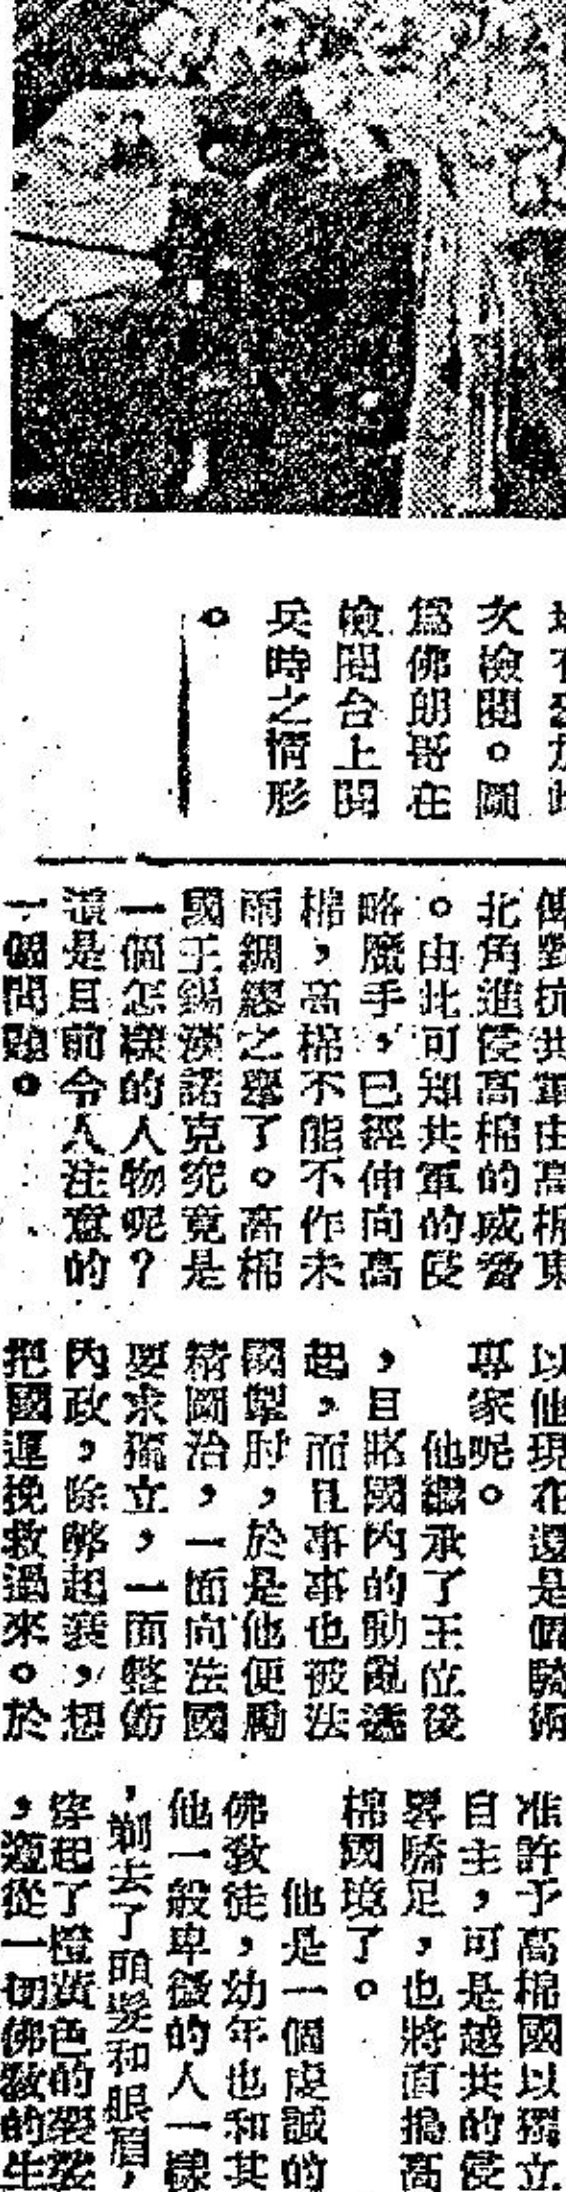 次檢閱。圖
爲佛朗哥在
檢閱台上閱
兵時之情形
。
北角進侵高棉的威脅
。由此可知共軍的侵
略魔手，已經伸向高
棉，高棉不能不作未
雨綢繆之舉了。高棉
國王錫漢諾克究竟是
一個怎樣的人物呢？
這是目前令人注意的
一個問題。
以他現在還是個騎術
專家呢。
他繼承了王位後
，目睹國內的動亂
起，而且事事也被法
國掣肘，於是他便勵
精圖治，一面向法國
要求獨立，一面整飭
內政，除弊起衰，想
把國運挽救過來。於
准許予高棉國以獨立
自主，可是越共的侵
畧驕足，也將直搗高
棉國境了。
他是一個虔誠的
佛敎徒，幼年也和其
他一般卑微的人一樣
，剃去了頭髮和眼眉，
穿起了橙黃色的袈裟
，遵從一切佛敎的生